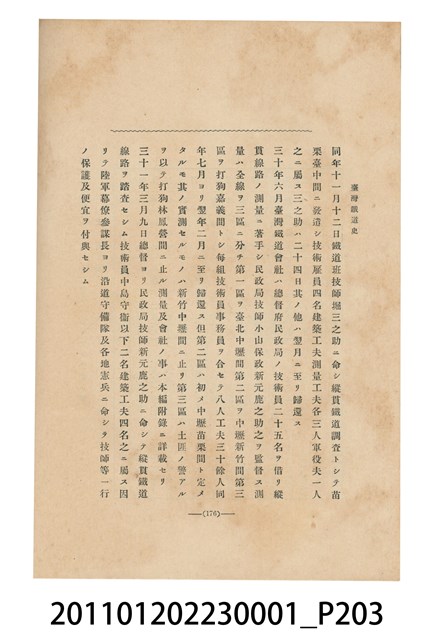 臺灣鐵道史
同年十一月十二日鐵道班技師堀三之助ニ命シ縱貫鐵道調查トシテ苗
栗臺中間ニ發遣シ技術雇員四名建築工夫測量工夫各三人軍役夫一人
之ニ屬ス三之助ハ二十四日其ノ他ハ翌月ニ至リ歸還ス
三十年六月臺灣鐵道會社ハ總督府民政局ノ技術員二十五名ヲ借リ縱
貫線路ノ測量ニ著手シ民政局技師小山保政新元鹿之助之ヲ監督ス測
量ハ全線ヲ三區ニ分チ第一區ヲ臺北中壢間第二區ヲ中壢新竹間第三
區ヲ打狗嘉義間トシ每組技術員事務員ヲ合セテ八人工夫三十餘人同
年七月ヨリ翌年二月ニ至ヲ歸還ス但第二區ハ初メ中壢苗栗間ト定メ
タルモ其ノ實測セルモノハ新竹中壢間ニ止リ第三區ハ土匪ノ警アル
ヲ以テ打狗林鳳營間ニ止ル測量及會社ノ事ハ本編附錄ニ詳載セリ
三十一年三月九日總督ヨリ民政局技師新元鹿之助ニ命シテ縱貫鐵道
線路ヲ踏查セシム技術員中島守衞以下二名建築工夫四名之ニ屬ス因
リテ陸軍幕僚參謀長ヨリ沿道守備隊及各地憲兵ニ命シテ技師等一行
ノ保護及便宜ヲ付與セシム
(176)
201101202230001_P203